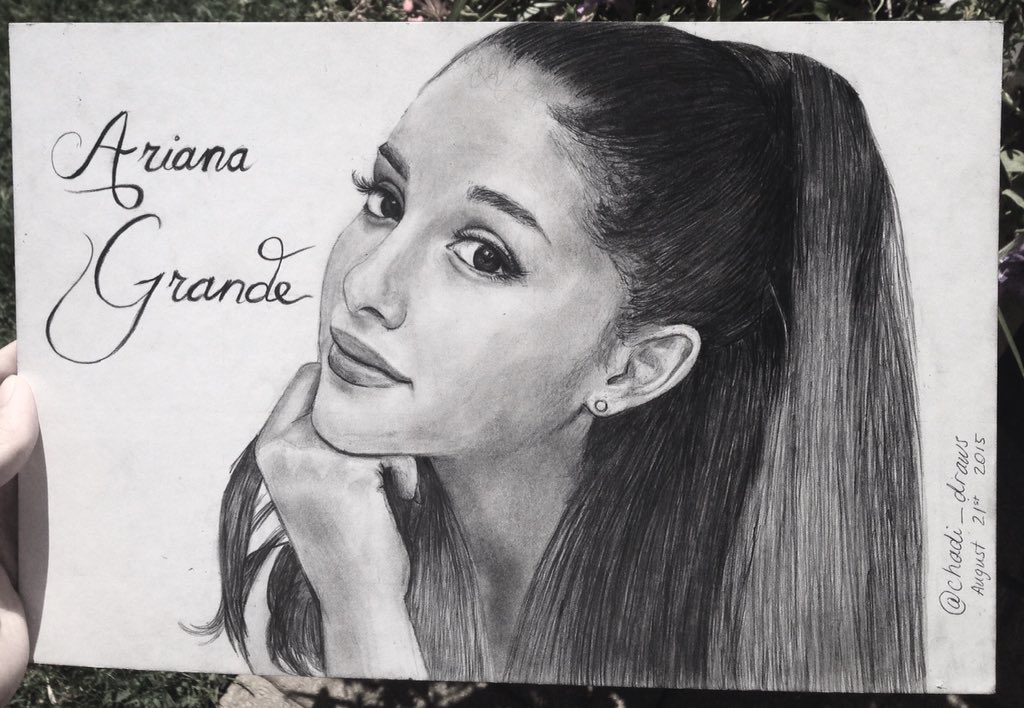 Ariana
Grande
@chadi_draws
August 21st 2015